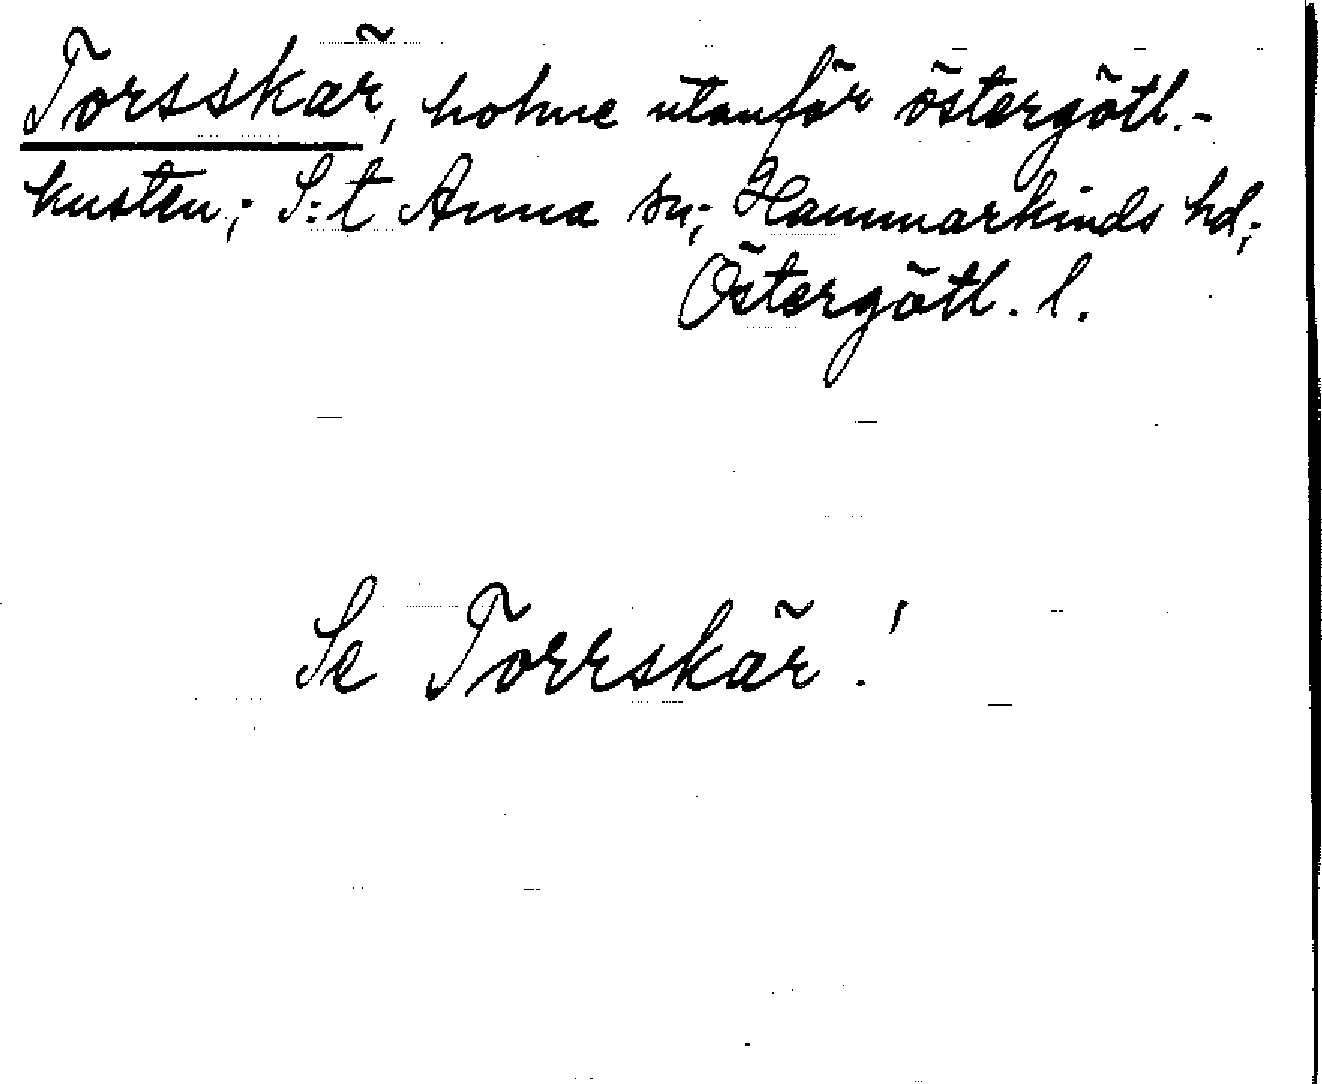 Torsskär, holme utanför östergötl.-
kusten; S:t Anna sn; Hammarkinds hd;
Östergötl. l.
Se Torrskär!